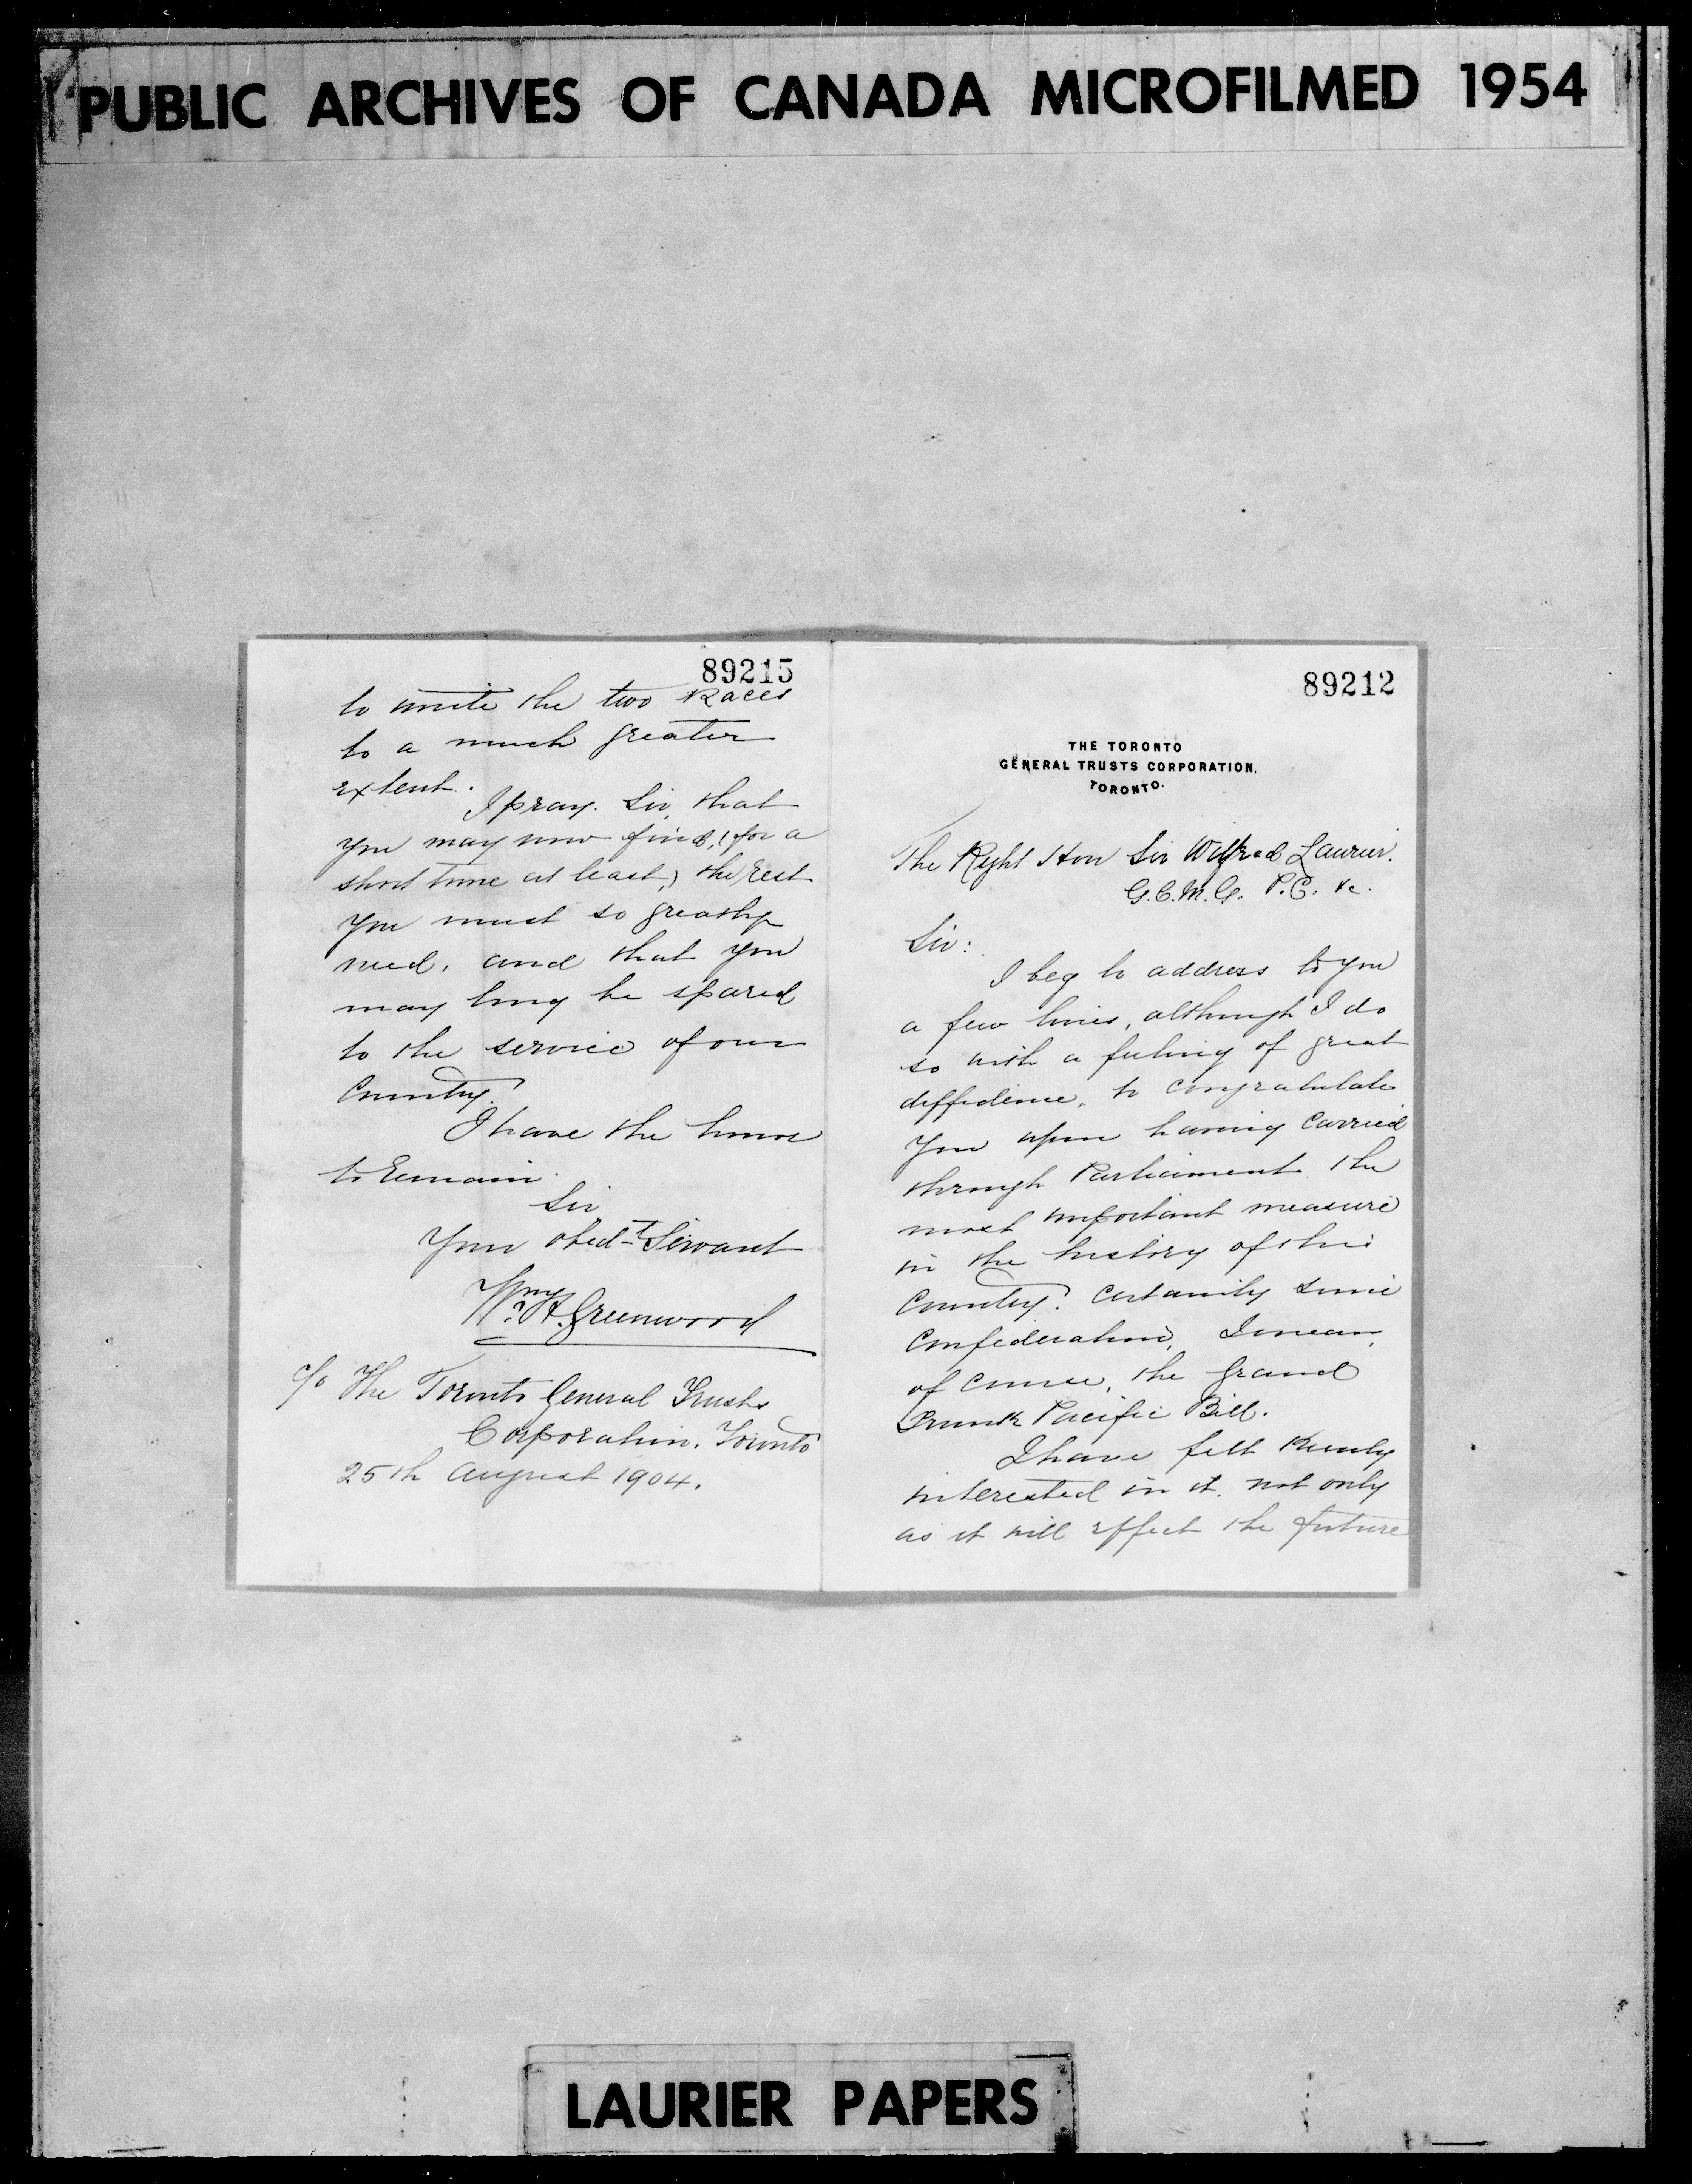 PUBLIC ARCHIVES OF CANADA MICROFILMED 1954
89215
to unite the two Races
to a much greater
extent.
I pray. Sir, that
you may now find, (for a
short time at least,) the rest
you must so greatly
need, and that you
may long be spared
to the service of our
Country.
I have the honor
to remain.
Sir
Your obed-t Servant
Wm H. Greenwood
c/o The Toronto General Trusts
Corporation. Toronto
25th August 1904.
89212
THE TORONTO
GENERAL TRUSTS CORPORATION,
TORONTO.
The Right Hon Sir Wilfred Laurier.
G.C.M.G. P.C. &c.
Sir:
I beg to address to you
a few lines, although I do
so with a feeling of great
diffidence, to congratulate
you upon having carried
through Parliament the
most important measure
in the history of this
Country. Certainly since
Confederation, I mean,
of course, the Grand
Trunk Pacific Bill.
I have felt keenly
interested in it, not only
as it will effect the future
LAURIER PAPERS